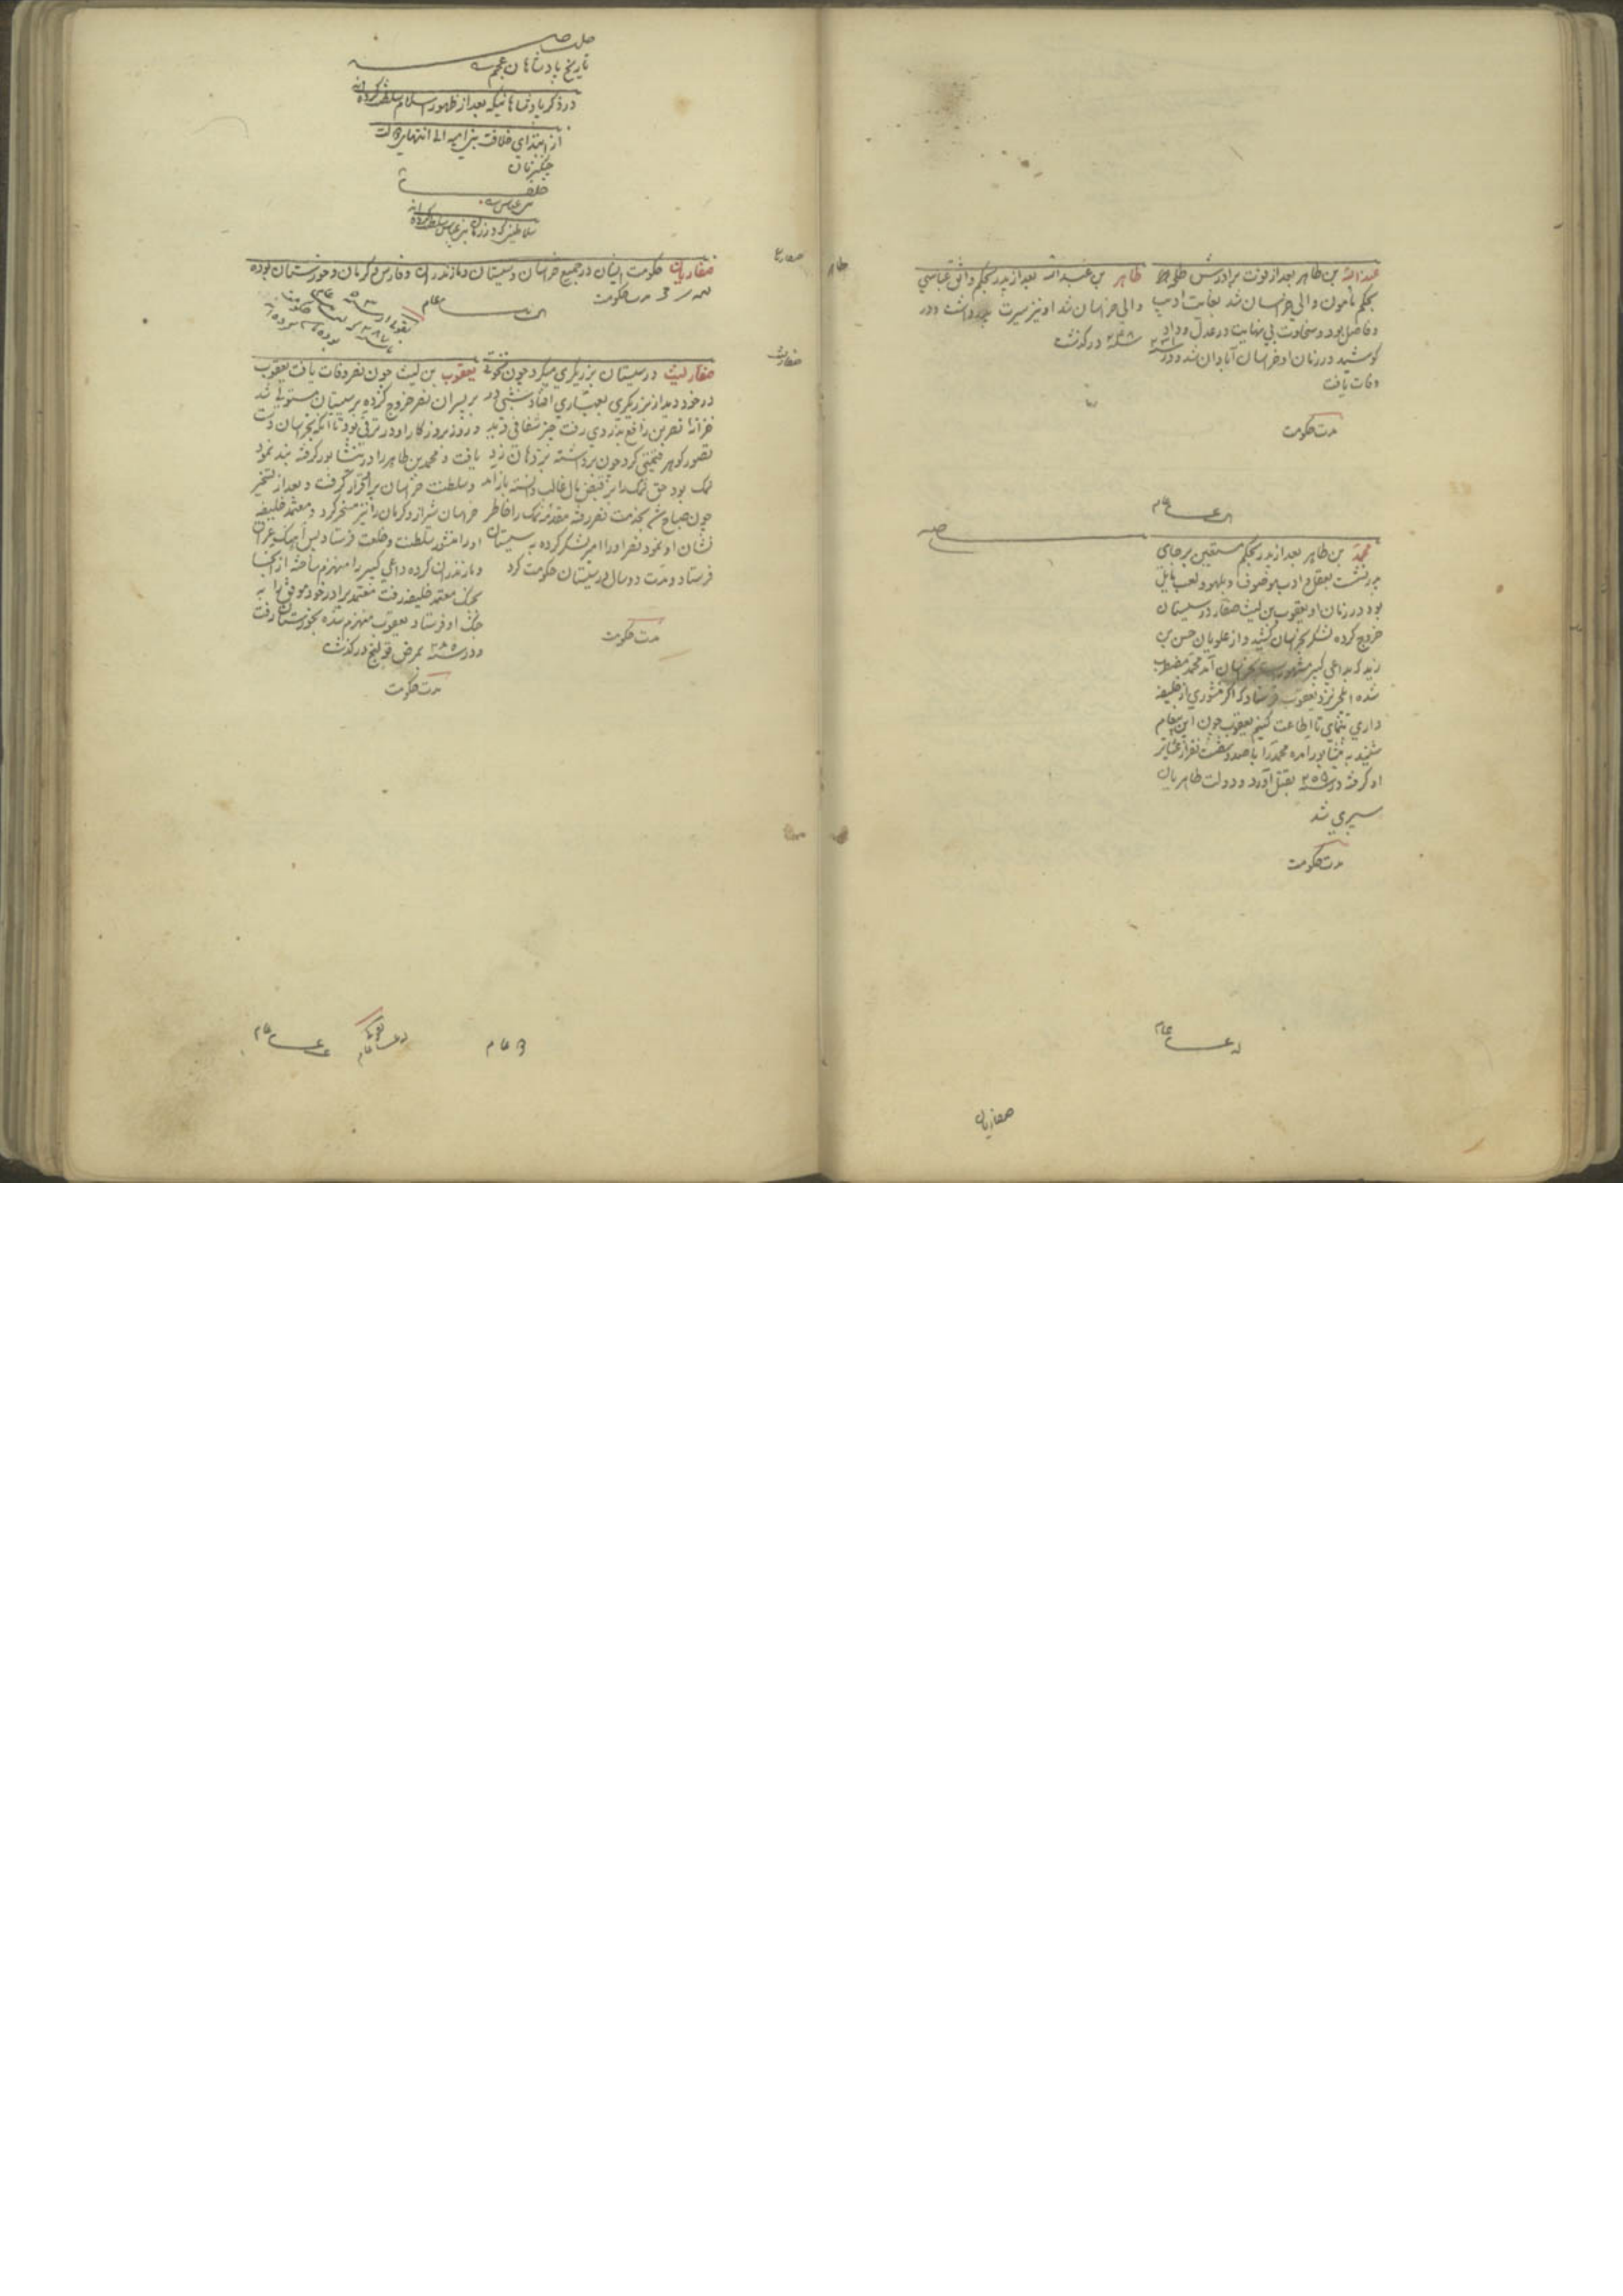 عبدالله بن طاهر بعد از فوت برادرش طلحه
بحکم مأمون والی خراسان شد بغایت ادیب
و فاضل بود و سخاوت بی نهایت در عدل و داد
کوشید در زمان او خراسان آبادان شد و در سنه ۲۳۰
وفات یافت
مدت حکومت
طاهر بن عبدالله بعد از پدر بحکم واثق عباسی
والی خراسان شد او نیز سیرت پدر داشت و در
سنه ۲۴۸ درگذشت
محمد بن طاهر بعد از پدر بحکم مستعین بر جای
پدر نشست بعقل و ادب موصوف و بلهو و لعب مایل
بود در زمان او یعقوب بن لیث صفار در سیستان
خروج کرده لشکر بخراسان کشید و از علویان حسن بن
زید که بداعی کبیر مشهور است بخراسان آمد محمد مضطرب
شده ایلچی نزد یعقوب فرستاد که اگر منشوری از خلیفه
داری بنمای تا اطاعت کنیم یعقوب چون این پیغام
شنید به نیشابور آمده محمد را با صد و شصت نفر از عشایر
او گرفته در سنه ۲۵۹ بقتل آورد و دولت طاهریان
سپری شد
مدت حکومت
صفاریان
تاریخ پادشاهان عجم
در ذکر پادشاهانیکه بعد از ظهور اسلام سلطنت کرده اند
از ابتدای خلافت بنی امیه الی انتهای دولت
چنگیزیان
بنی عباس
سلاطین که در زمان بنی عباس سلطنت کرده اند
صفاریان حکومت ایشان در جمیع خراسان و سیستان و مازندران و فارس و کرمان و خوزستان بوده
مدت حکومت
صفار لیث در سیستان برزیگری میکرد چون نخوتی
در خود دید از برزیگری بعیاری افتاد شبی در
خزانه نصر بن رافع بدزدی رفت چیز شفافی دید
تصور گوهر قیمتی کرد چون برداشته بر زبان زد
نمک بود حق نمک را بر قبض مال غالب دانسته باز آمد
چون صباح شد بخدمت نصر رفته مقدمه نمک را خاطر
نشان او نمود نصر او را امیر لشکر کرده به سیستان
فرستاد و مدت دو سال در سیستان حکومت کرد
مدت حکومت
یعقوب بن لیث چون نصر وفات یافت یعقوب
بر پسران نصر خروج کرده بر سیستان مستولی شد
و روز بروز کار او در ترقی بود تا آنکه بخراسان دست
یافت و محمد بن طاهر را در نیشابور گرفته بند نمود
و سلطنت خراسان بر او قرار گرفت و بعد از تسخیر
خراسان شیراز و کرمان را نیز مسخر کرد و معتمد خلیفه
او را منشور سلطنت و خلعت فرستاد پس آهنگ عراق
و مازندران کرده داعی کبیر را منهزم ساخته از آنجا
بجنگ معتمد خلیفه رفت معتمد برادر خود موفق را به
جنگ او فرستاد یعقوب منهزم شده بخوزستان رفت
و در سنه بمرض قولنج درگذشت
مدت حکومت